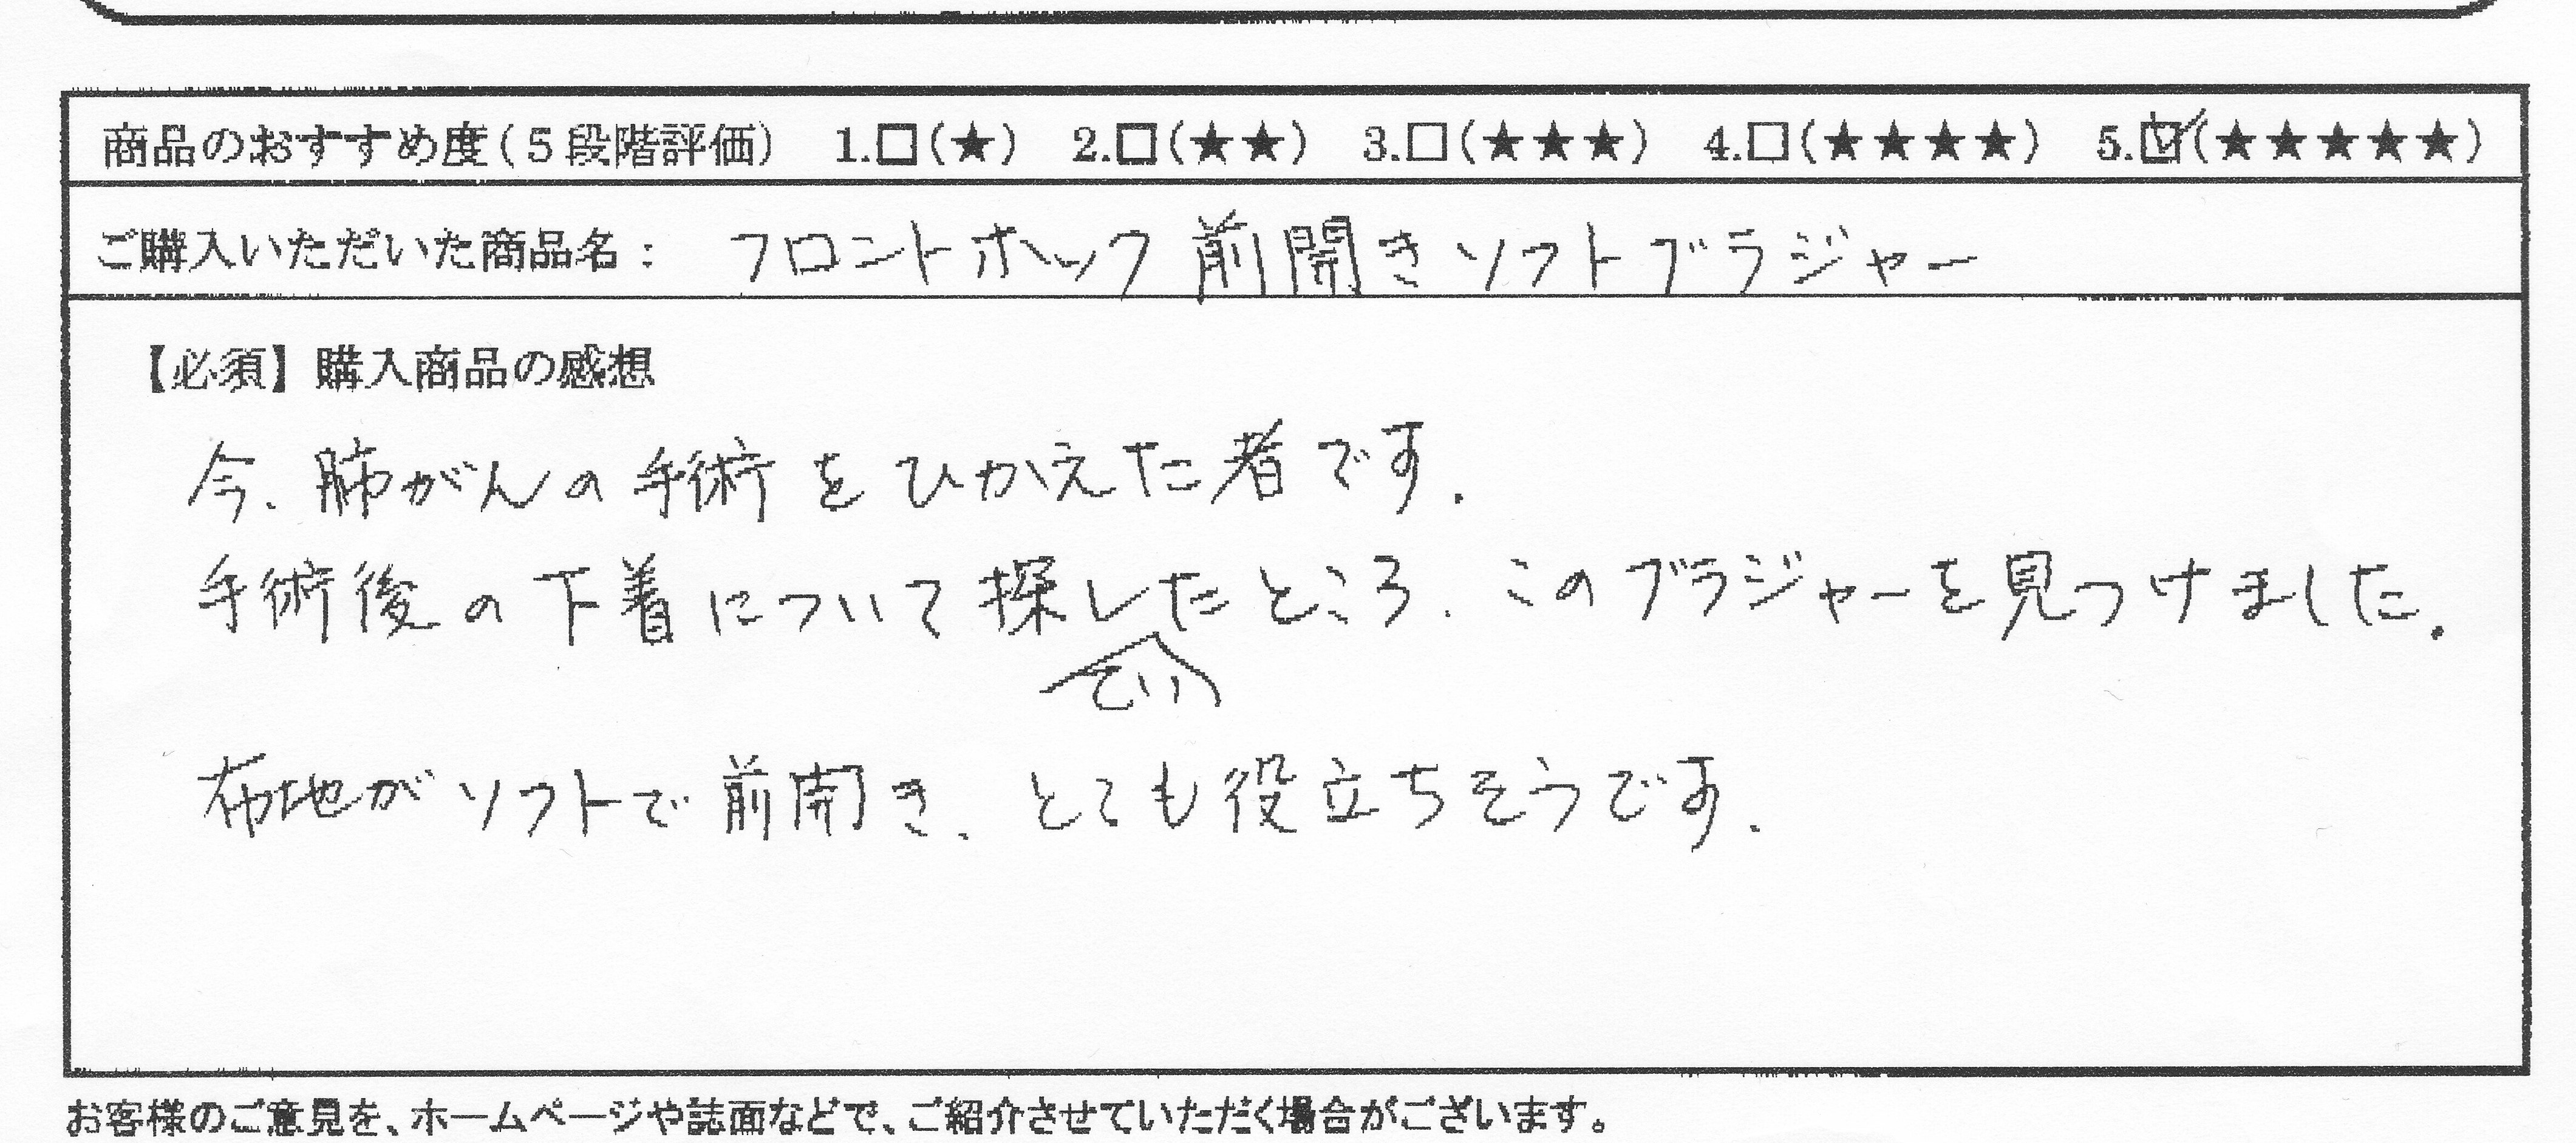 商品のおすすめ度(5段階評価) 1.□(★) 2.□(★★) 3.□(★★★) 4.□(★★★★) 5.☑(★★★★★)
ご購入いただいた商品名: フロントホック 前開きソフトブラジャー
【必須】購入商品の感想
今、肺がんの手術をひかえた者です.
手術後の下着について探したところ、このブラジャーを見つけました.
てい
布地がソフトで前開き、とても役立ちそうです.
お客様のご意見を、ホームページや誌面などで、ご紹介させていただく場合がございます。